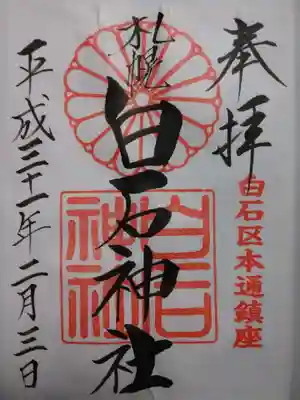 奉拝
白石区本通鎮座
札幌
白石神社
白石
神社
平成三十一年二月三日